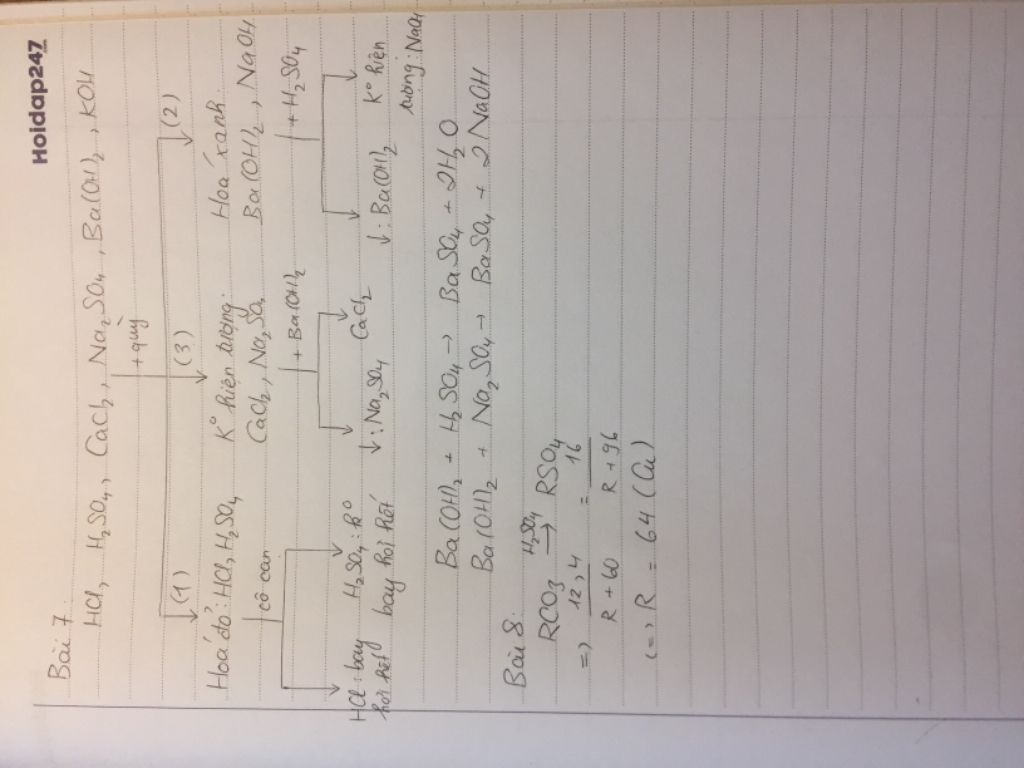 Hoidap247
Bài 7:
HCl, H2SO4, CaCl2, Na2SO4, Ba(OH)2, KOH
+ quỳ
(1) (3) (2)
Hoá đỏ: HCl, H2SO4 K° hiện tượng: Hoá xanh:
CaCl2, Na2SO4 Ba(OH)2, NaOH
cô cạn + Ba(OH)2 + H2SO4
HCl: bay H2SO4: k° ↓: Na2SO4 CaCl2 ↓: Ba(OH)2 K° hiện
hơi hết bay hơi hết tượng: NaOH
Ba(OH)2 + H2SO4 → BaSO4 + 2H2O
Ba(OH)2 + Na2SO4 → BaSO4 + 2NaOH
Bài 8:
RCO3 H2SO4 → RSO4
=) 12,4 / R + 60 = 16 / R + 96
(=) R = 64 (Cu)